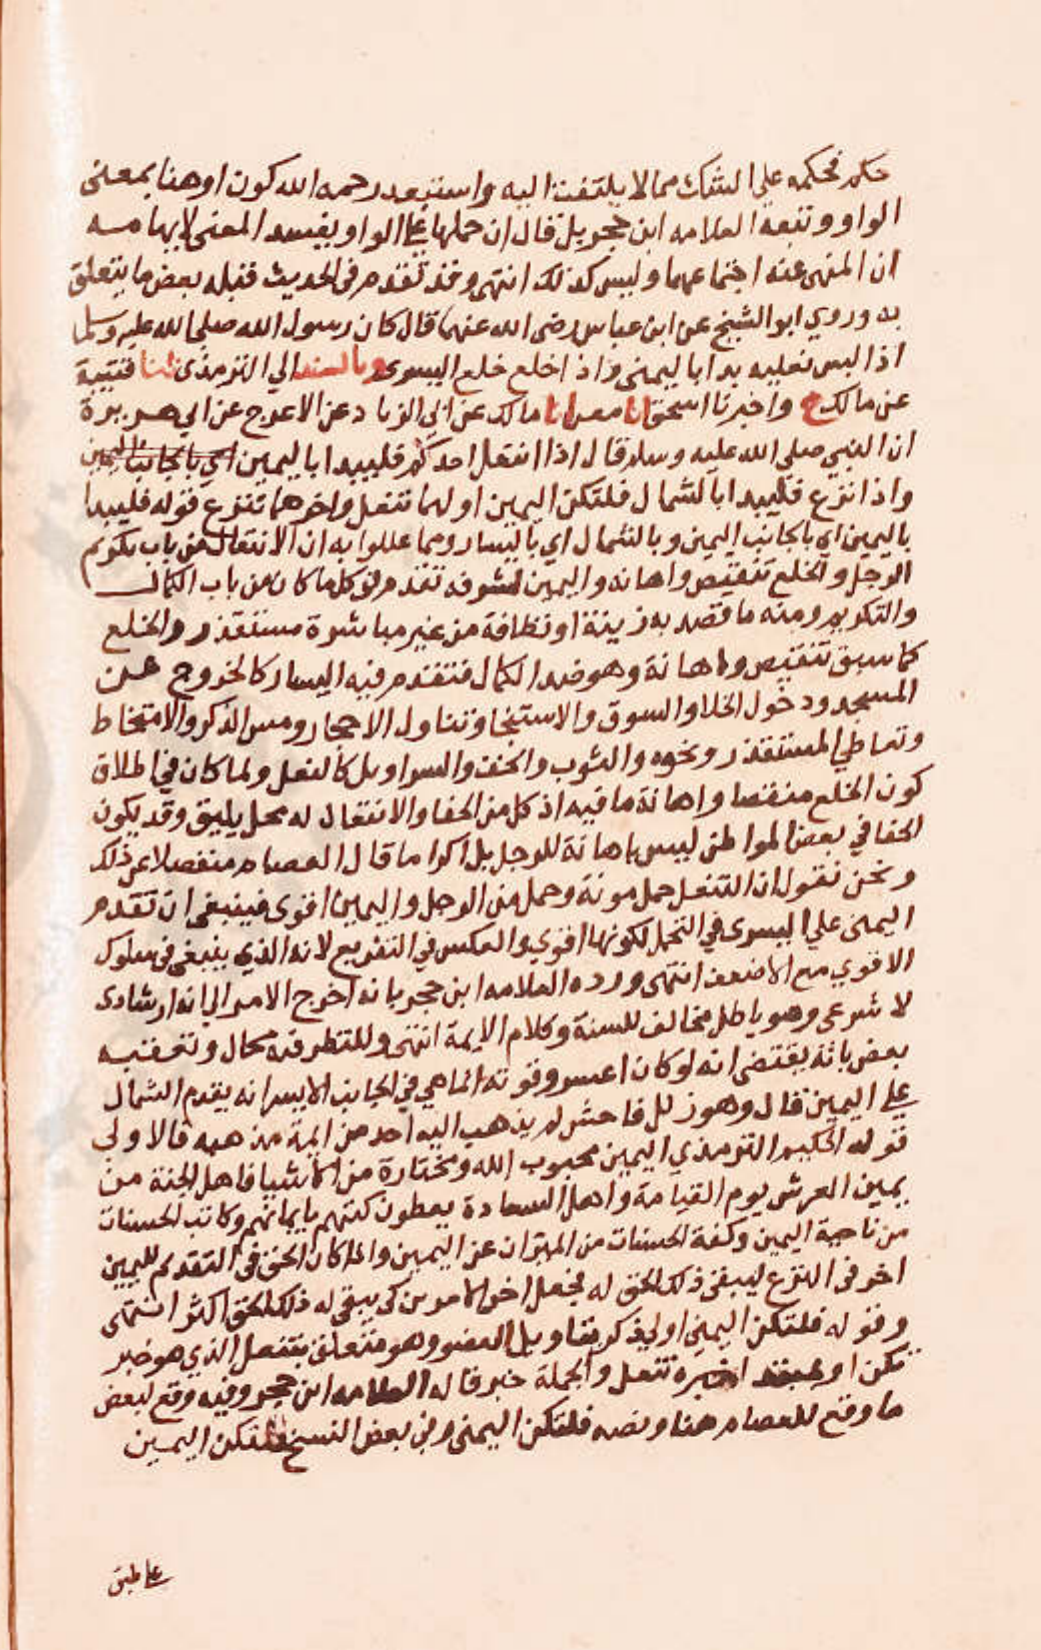 حكمه فحكمه علي الشك مما لا يلتفت اليه واستبعد رحمه الله كون او هنا بمعنى
الواو وتبعه العلامه ابن حجر بل قال ان حملها علي الواو يفسد المعنى لايهامه
ان المنهى عنه اجتماعهما وليس كذلك انتهى وقد تقدم فى الحديث قبله بعض ما يتعلق
به وروي ابو الشيخ عن ابن عباس رضى الله عنهما قال كان رسول الله صلى الله عليه وسلم
اذا لبس نعليه بدا باليمنى واذا خلع خلع اليسرى وبالسند الي الترمذى ثنا قتيبة
عن مالك ح واخبرنا اسحق انا معن انا مالك عن ابي الزناد عن الاعرج عن ابي هريرة
ان النبي صلى الله عليه وسلم قال اذا انتعل احدكم فليبدا باليمين اي بالجانب اليمين
واذا نزع فليبدا بالشمال فلتكن اليمين اولهما تنعل واخرهما تنزع قوله فليبدا
باليمين اي بالجانب اليمين وبالشمال اي باليسار ومما عللوا به ان الانتعال من باب تكريم
الرجل والخلع تنقيص واهانه واليمين لشرفه تقدم في كل ما كان من باب الكمال
والتكريم ومنه ما قصد به زينة او نظافة من غير مباشرة مستقذر والخلع
كما سبق تنقيص واهانة وهو ضد الكمال فتقدم فيه اليسار كالخروج عن
المسجد ودخول الخلا والسوق والاستنجا وتناول الاحجار ومس الذكر والامتخاط
وتعاطي المستقذر ونحوه والثوب والخف والسراويل كالنعل ولما كان في اطلاق
كون الخلع منقصا واهانة ما فيه اذ كل من الحفا والانتعال له محل يليق وقد يكون
الحفا في بعض المواطن ليس باهانة للرجل بل اكراما قال العصام منفصلا عن ذلك
ونحن نقول ان التنعل حمل مونة وحمل من الرجل واليمين اقوى فينبغى ان تقدم
اليمنى علي اليسرى في التحمل لكونها اقوي والعكس في التفريع لانه الذي ينبغى فى سلوك
الاقوي مع الاضعف انتهى ورده العلامه ابن حجر بانه اخرج الامر الي انه ارشادى
لا شرعى وهو باطل مخالف للسنة وكلام الايمة انتهى وللنظر فيه مجال وتعقبه
بعض بانه يقتضى انه لو كان اعسر وقوته انما هي في الجانب الايسر انه يقدم الشمال
علي اليمين قال وهو زلل فاحش لم يذهب اليه احد من ايمة مذهبه فالاولى
قوله الحكيم الترمذي اليمين محبوب الله ومختارة من الاشيا فاهل الجنة من
يمين العرش يوم القيامة واهل السعادة يعطون كتبهم بايمانهم وكاتب الحسنات
من ناحية اليمين وكفة الحسنات من الميزان عن اليمين ولما كان الحق فى التقديم لليمين
اخر فى النزع ليبقى ذلك الحق له فجعل اخر الامرين كي يبقى له ذلك الحق اكثر انتهى
وقوله فلتكن اليمنى اولي ذكر بتاويل العضو وهو متعلق بتنعل الذي هو خبر
تكن او خبره تنعل والجملة خبر قاله العلامه ابن حجر وفيه وقع لبعض
ما وقع للعصام هنا ونصه فلتكن اليمنى وفى بعض النسخ فلتكن اليمين
علي طبق